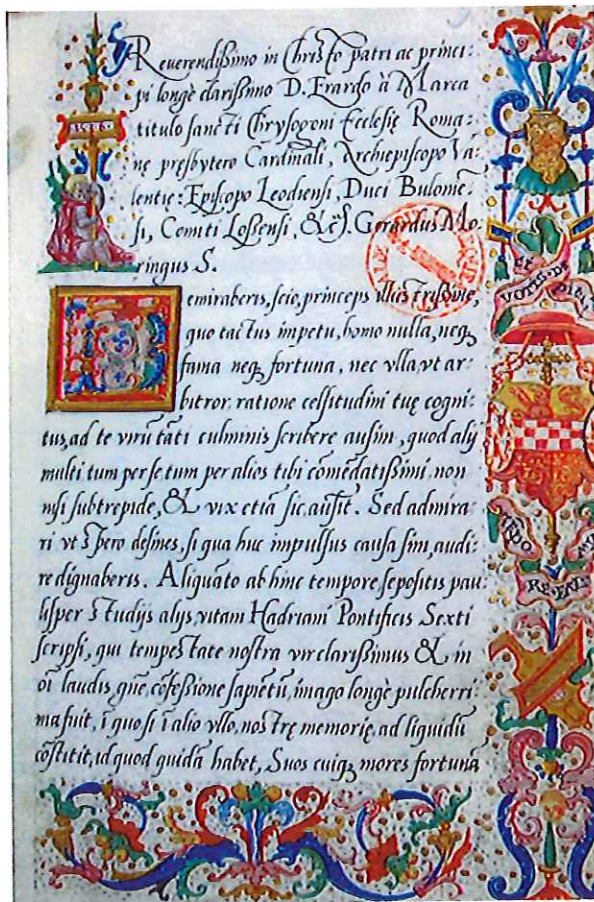 Reuerendißimo in Christo patri ac princi:
pi longè clarißimo D. Erardo à Marca
titulo sancti Chrysogoni Ecclesię Roma:
nę preßbytero Cardinali, Archiepiscopo Va:
lentię: Episcopo Leodiensi, Duci Bulonie͂:
si, Comiti Loßensi, &c̃. Gerardus Mo:
ringus S.
emiraberis, scio, princeps illustrißime,
quo tactus impetu, homo nulla, neq;
fama neq; fortuna, nec vlla, vt ar:
bitror, ratione celsitudini tuę cogni:
tus, ad te virũ tãti culminis scribere ausim, quod alij
multi tum per se tum per alios tibi cõmẽdatißimi, non
nisi subtrepide, & vix etiã sic, ausĩt. Sed admira:
ri vt spero desines, si qua huc impulsus causa sim, audi:
re dignaberis. Aliquãto ab hinc tempore sepositis pau:
lisper studijs alijs, vitam Hadriani Pontificis Sexti
scripsi, qui tempestate nostra vir clarißimus & in
oĩ laudis gñe, cõfeßione sapiẽtũ, imago longè pulcherri:
ma fuit, ĩ quo si ĩ alio vllo, nostrę memorię, ad liquidũ
cõstitit, id quod quidã habet, Suos cuiq; mores fortunã